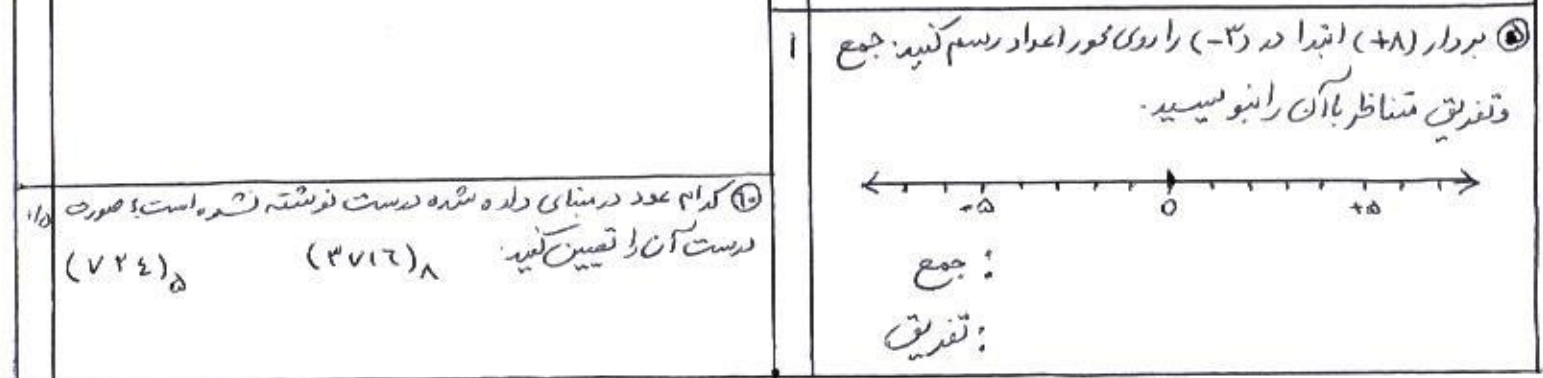 ۵ بردار (+۸) ابتدا در (-۳) را روی محور اعداد رسم کنید. جمع
۱
وتفریق متناظر با آن را بنویسید.
-۵ 0 +۵
جمع :
تفریق :
۱۰ کدام عدد در مبنای داده شده درست نوشته نشده است؟ صورت
۱/۵
درست آن را تعیین کنید. (۳۷۱٦)۸ (۷۲٤)۵